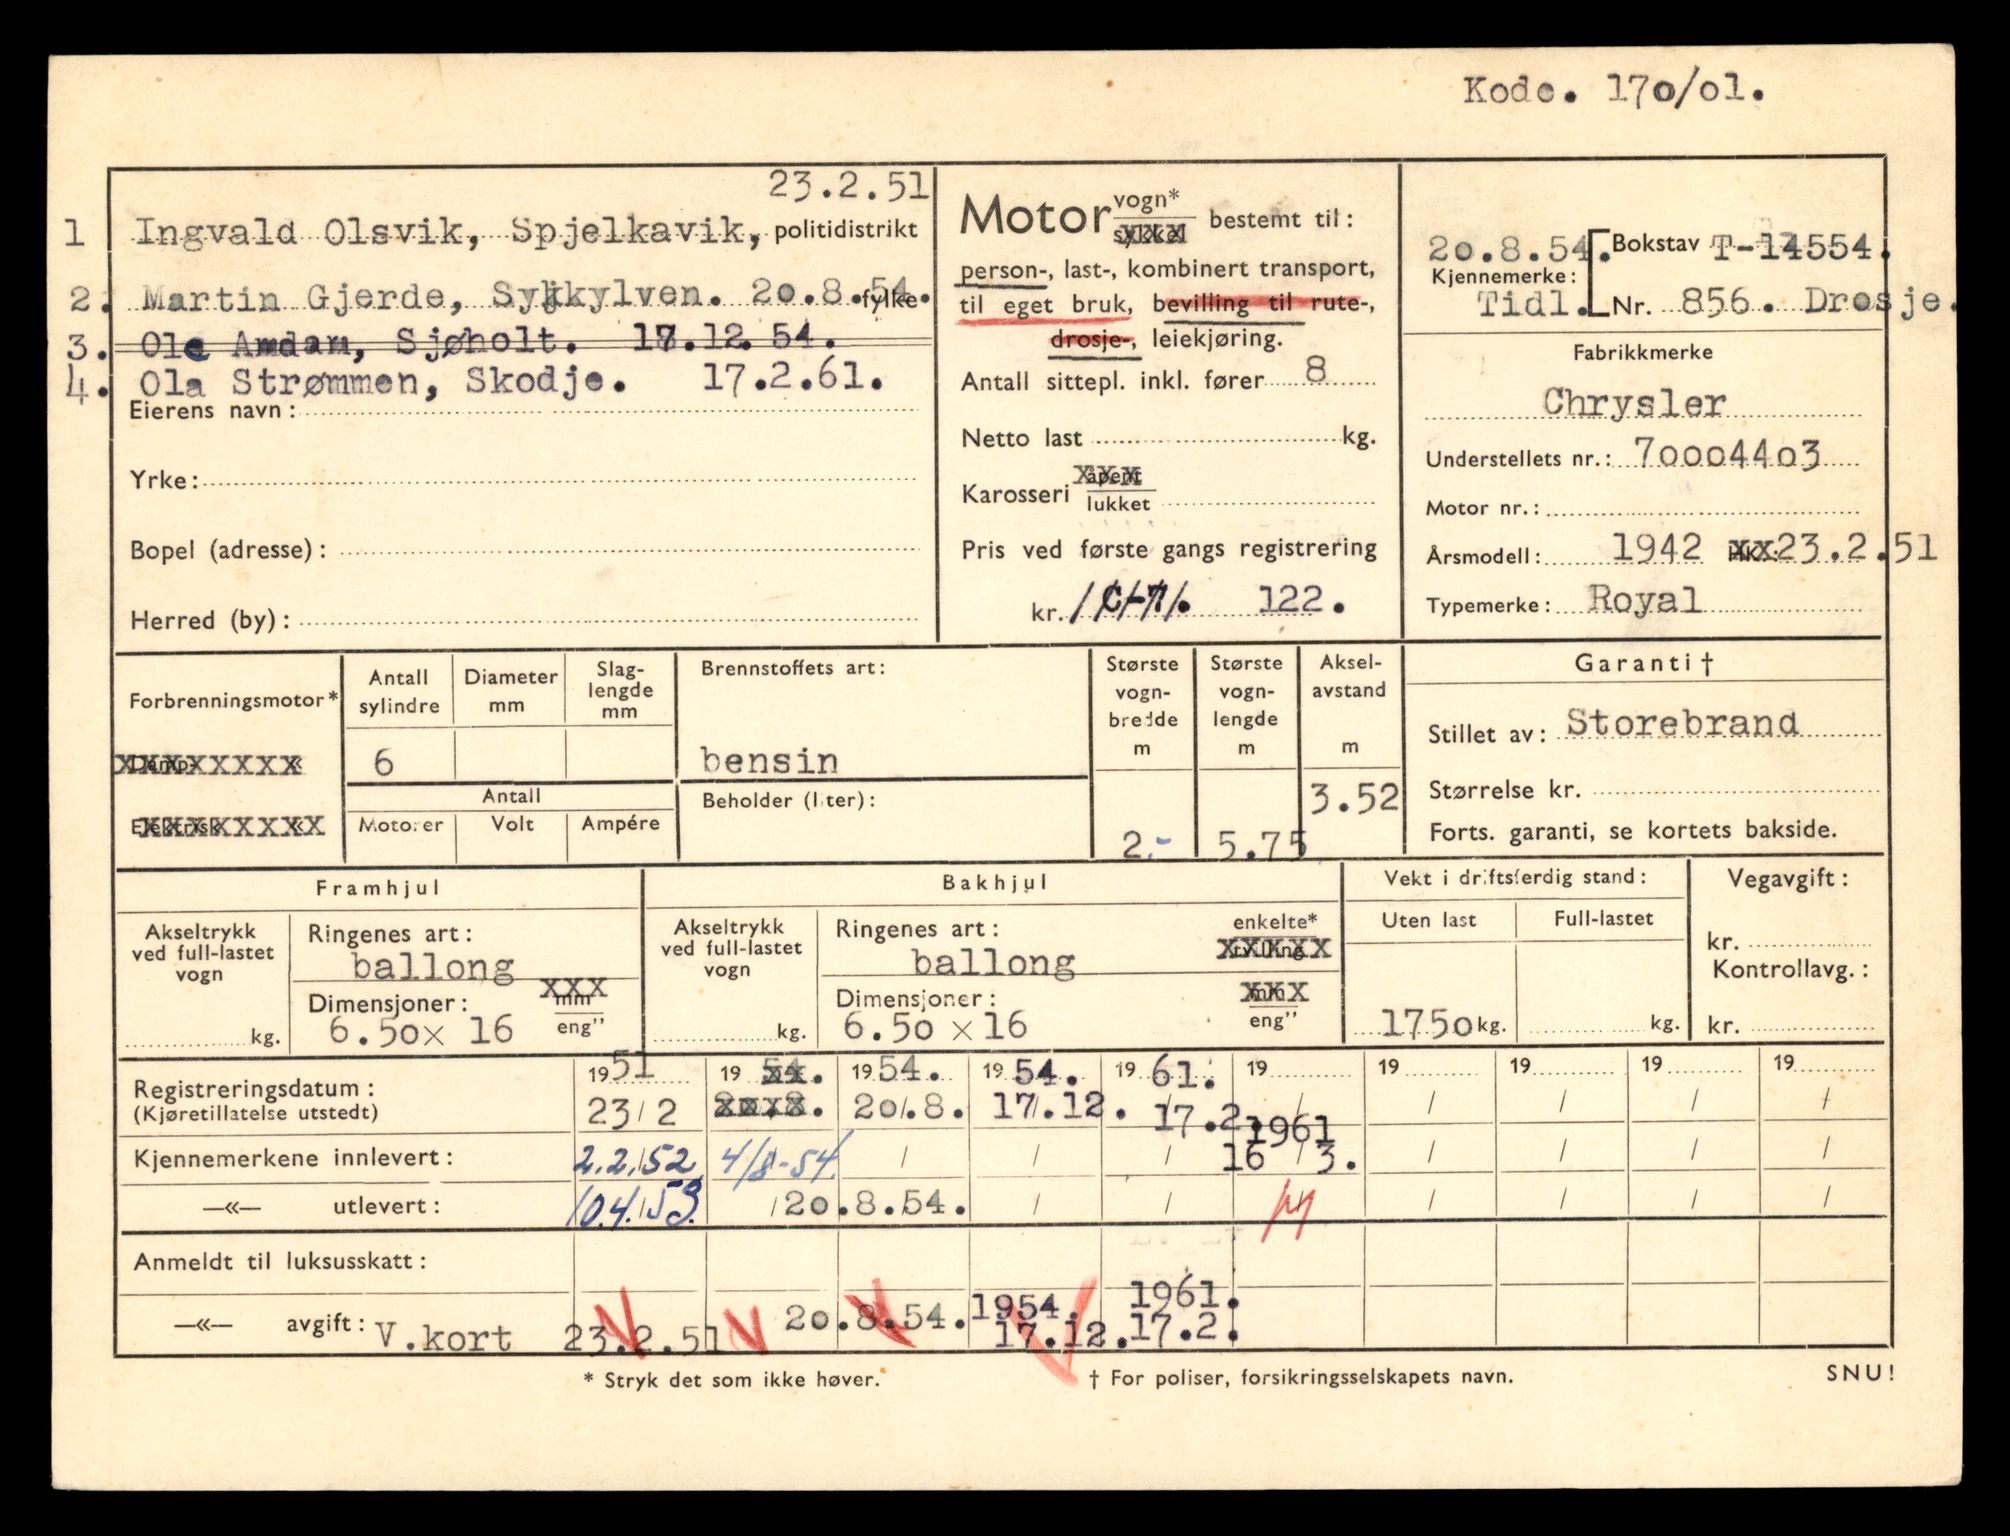 Kode. 170/01.
23.2.51
1 Ingvald Olsvik, Spjelkavik, politidistrikt
2. Martin Gjerde, Sykkylven. 20.8.54. fylke
3. Ole Amdam, Sjøholt. 17.12.54.
4. Ola Strømmen, Skodje. 17.2.61.
Eierens navn:
Yrke:
Bopel (adresse):
Herred (by):
Motor vogn* sykkel bestemt til:
person-, last-, kombinert transport,
til eget bruk, bevilling til rute-,
drosje-, leiekjøring.
Antall sittepl. inkl. fører 8
Netto last kg.
Karosseri åpent lukket
Pris ved første gangs registrering
kr. 122.
20.8.54. Bokstav T-14554.
Kjennemerke:
Tidl. Nr. 856. Drosje.
Fabrikkmerke
Chrysler
Understellets nr.: 70004403
Motor nr.:
Årsmodell: 1942 HK.: 23.2.51
Typemerke: Royal
Forbrenningsmotor*
Damp- «
Elektrisk «
Antall sylindre
6
Diameter mm
Slag-lengde mm
Antall
Motorer Volt Ampére
Brennstoffets art:
bensin
Beholder (liter):
Største vogn-bredde m
2.-
Største vogn-lengde m
5.75
Aksel-avstand m
3.52
Garanti †
Stillet av: Storebrand
Størrelse kr.
Forts. garanti, se kortets bakside.
Framhjul
Akseltrykk ved full-lastet vogn
kg.
Ringenes art:
ballong
Dimensjoner: mm
6.50 x 16 eng”
Bakhjul
Akseltrykk ved full-lastet vogn
kg.
Ringenes art: enkelte*
ballong tvilling
Dimensjoner: mm
6.50 x 16 eng”
Vekt i driftsferdig stand:
Uten last Full-lastet
1750 kg. kg.
Vegavgift:
kr.
Kontrollavg.:
kr.
Registreringsdatum: 1951 1954. 1954. 1954. 1961. 19 19 19 19 19
(Kjøretillatelse utstedt) 23/2 20.8. 20/.8. 17/.12. 17.2. / / / / /
1961
Kjennemerkene innlevert: 2.2.52 4/8-54. / / / 16/3. / / / /
—«— utlevert: 10.4.53. 20.8.54. / / / / / /
Anmeldt til luksusskatt:
—«— avgift: V.kort 23.2.51 20.8.54. 1954. 17.12. 1961. 17.2.
* Stryk det som ikke høver.
† For poliser, forsikringsselskapets navn.
SNU!